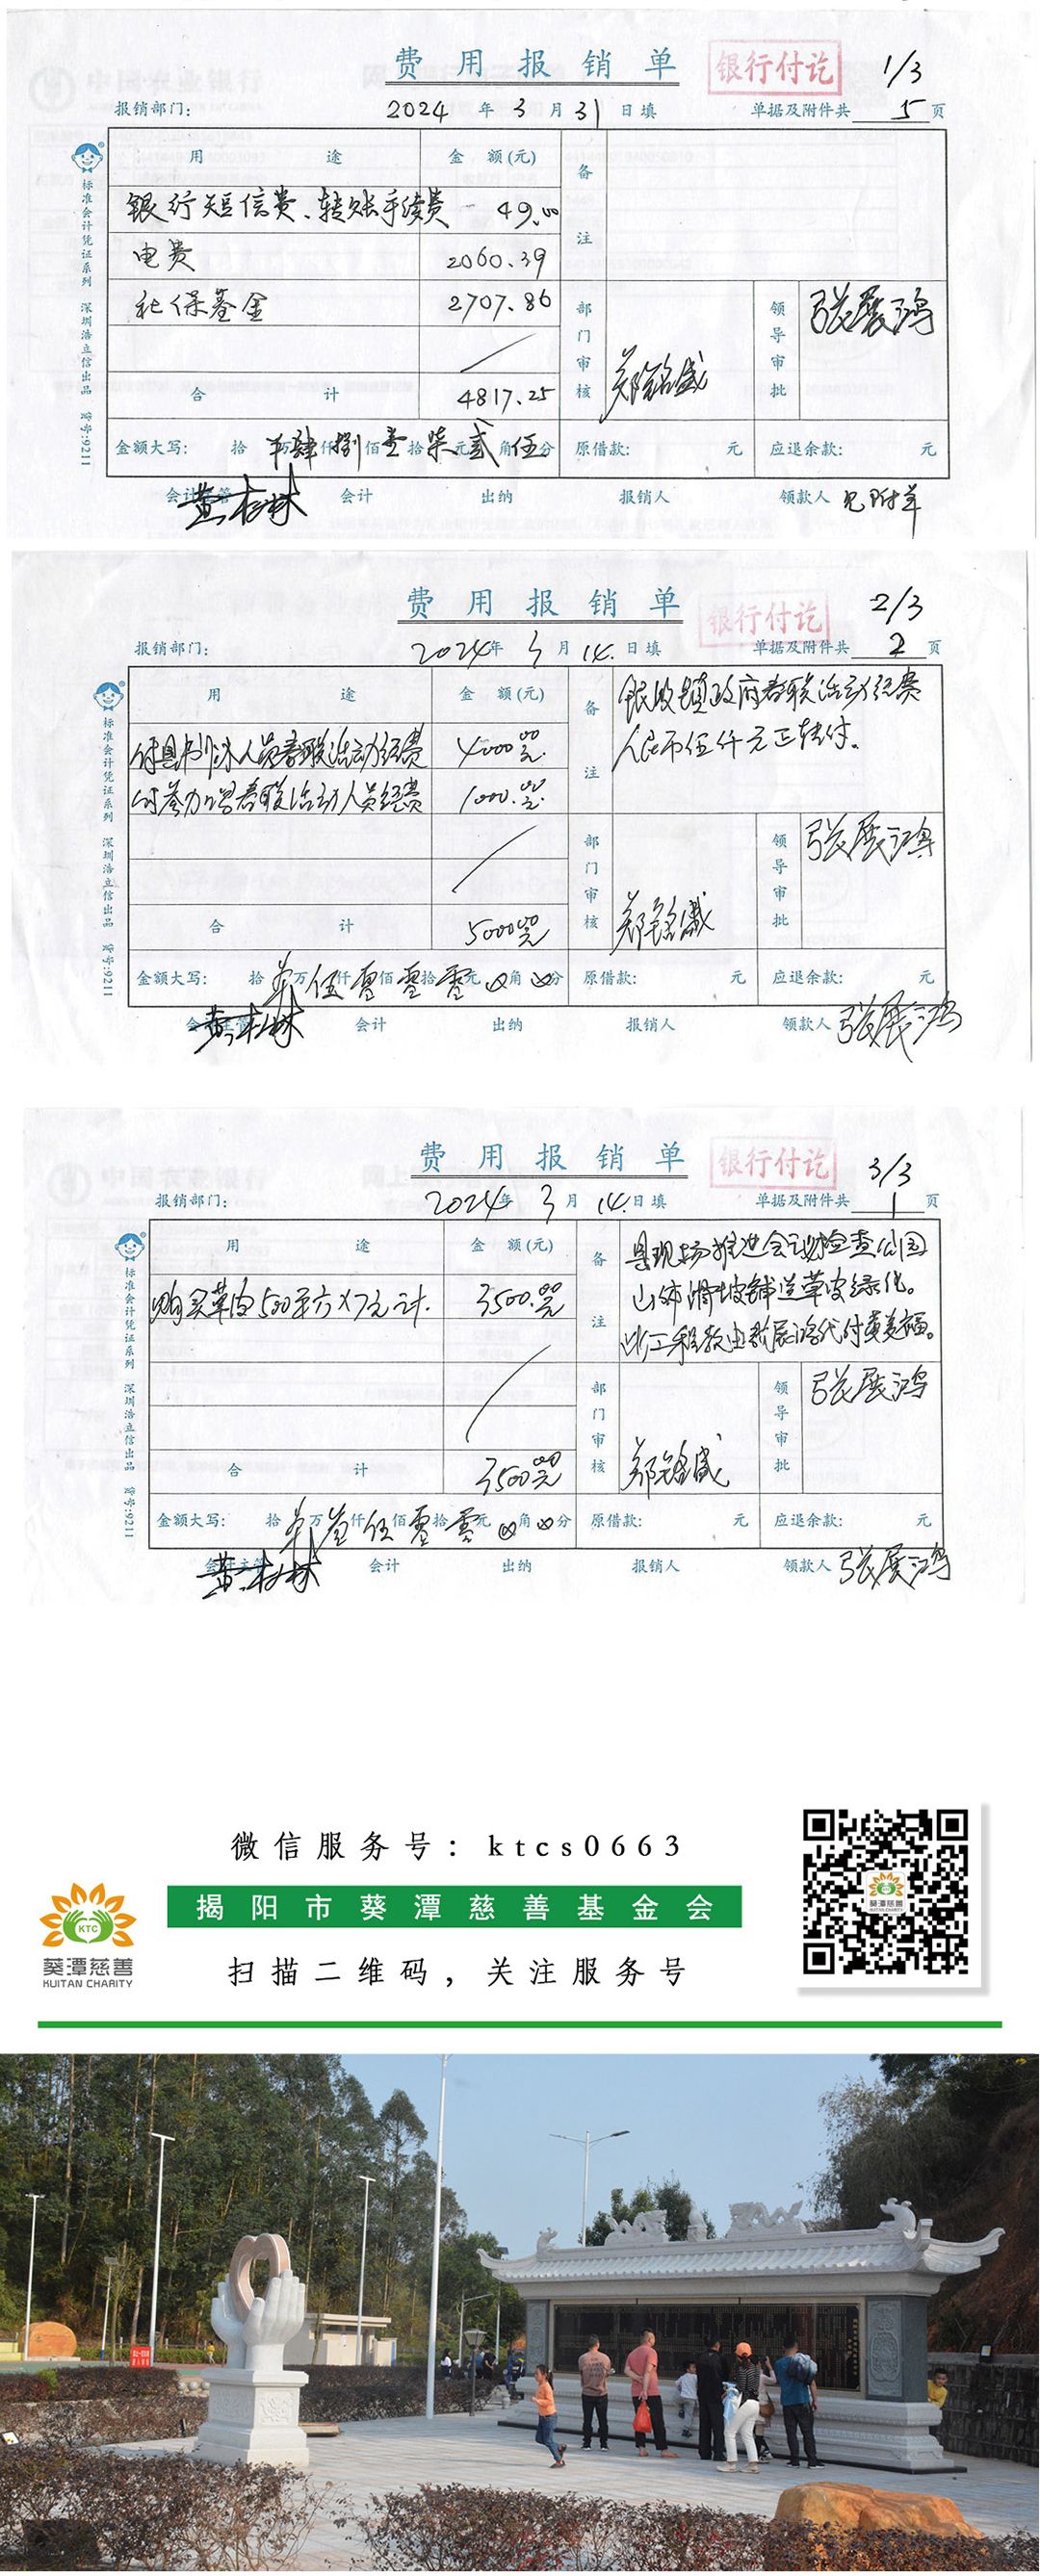 费用报销单
银行付讫
1/3
报销部门:
2024年3月31日填
单据及附件共5页
用途
金额(元)
备注
银行短信费、转账手续费
49.00
电费
2060.39
社保基金
2707.86
部门审核
郑铭盛
领导审批
张展鸿
合计
4817.25
金额大写: 拾万肆仟捌佰壹拾柒元贰角伍分
原借款: 元
应退余款: 元
会计主管
黄树林
会计
出纳
报销人
领款人
见附单
标准会计凭证系列 深圳浩立信出品 货号:9211
费用报销单
银行付讫
2/3
报销部门:
2024年3月14日填
单据及附件共2页
用途
金额(元)
备注
银收镇政府春联活动经费
人民币伍仟元正转付。
春联活动经费
4000.00元
付参加写春联活动人员经费
1000.00元
部门审核
郑铭盛
领导审批
张展鸿
合计
5000.00元
金额大写: 拾万伍仟零佰零拾零元角分
原借款: 元
应退余款: 元
会计主管
黄树林
会计
出纳
报销人
领款人
张展鸿
标准会计凭证系列 深圳浩立信出品 货号:9211
费用报销单
银行付讫
3/3
报销部门:
2024年3月14日填
单据及附件共1页
用途
金额(元)
备注
县现场推进会议检查公园
山体滑坡铺送草皮绿化。
此工程款由张展鸿代付
购买草皮500平方×7元计.
3500.00元
部门审核
郑铭盛
领导审批
张展鸿
合计
3500.00元
金额大写: 拾万叁仟伍佰零拾零元角分
原借款: 元
应退余款: 元
会计主管
黄树林
会计
出纳
报销人
领款人
张展鸿
标准会计凭证系列 深圳浩立信出品 货号:9211
微信服务号: ktcs0663
揭阳市葵潭慈善基金会
扫描二维码,关注服务号
KTC
葵潭慈善
KUITAN CHARITY
葵潭慈善
KUITAN CHARITY